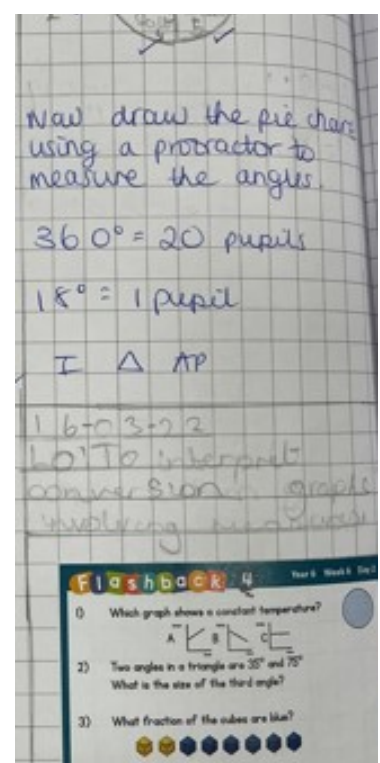 Now draw the pie chart
using a protractor to
measure the angles.
360° = 20 pupils
18° = 1 pupil
I △ AP
16-03-22
LO: To interpret
conversion graphs
involving
Flashback 4
Year 6 Week 6 Day 2
1) Which graph shows a constant temperature?
A B C
2) Two angles in a triangle are 35° and 75°
What is the size of the third angle?
3) What fraction of the cubes are blue?